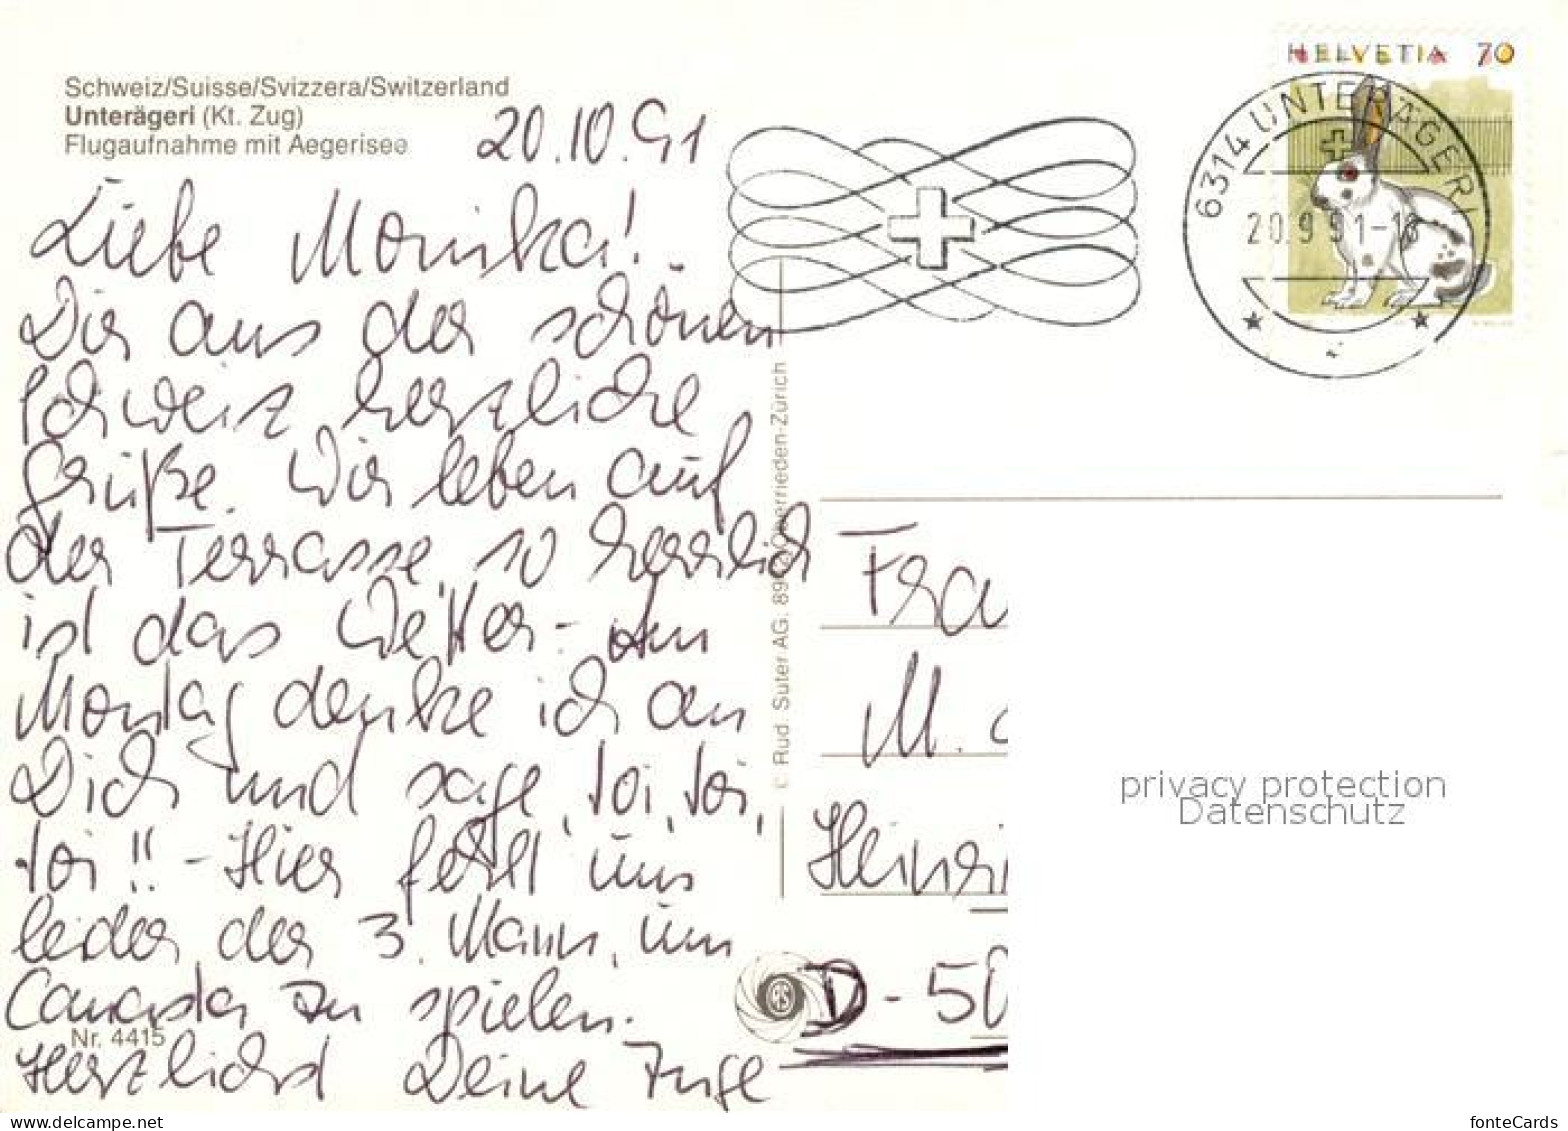 Schweiz/Suisse/Svizzera/Switzerland
Unterägeri (Kt. Zug)
Flugaufnahme mit Aegerisee
20.10.91
HELVETIA 70
6314 UNTERÄGERI
20.9.91-18
Liebe Monika!
Dir aus der schönen
Schweiz herzliche
Grüße. Wir leben auf
der Terrasse, so herrlich
ist das Wetter - Am
Montag denke ich an
Dich und sage, toi, toi,
toi!! - Hier fehlt uns
leider der 3. Mann, um
Canasta zu spielen.
Herzlichst Deine Inge
Nr. 4415
© Rud. Suter AG, 8942 Oberrieden-Zürich
Fra
M.
Heinri
D-50
privacy protection
Datenschutz
www.delcampe.net
fonteCards